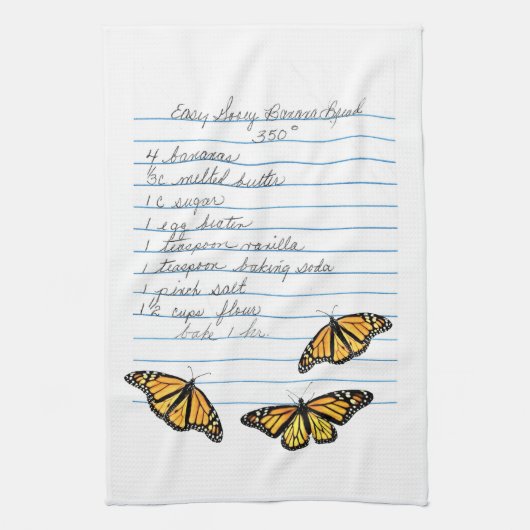 Easy Gooey Banana Bread
350°
4 bananas
1/3 c melted butter
1 c sugar
1 egg beaten
1 teaspoon vanilla
1 teaspoon baking soda
1 pinch salt
1 1/2 cups flour
bake 1 hr.